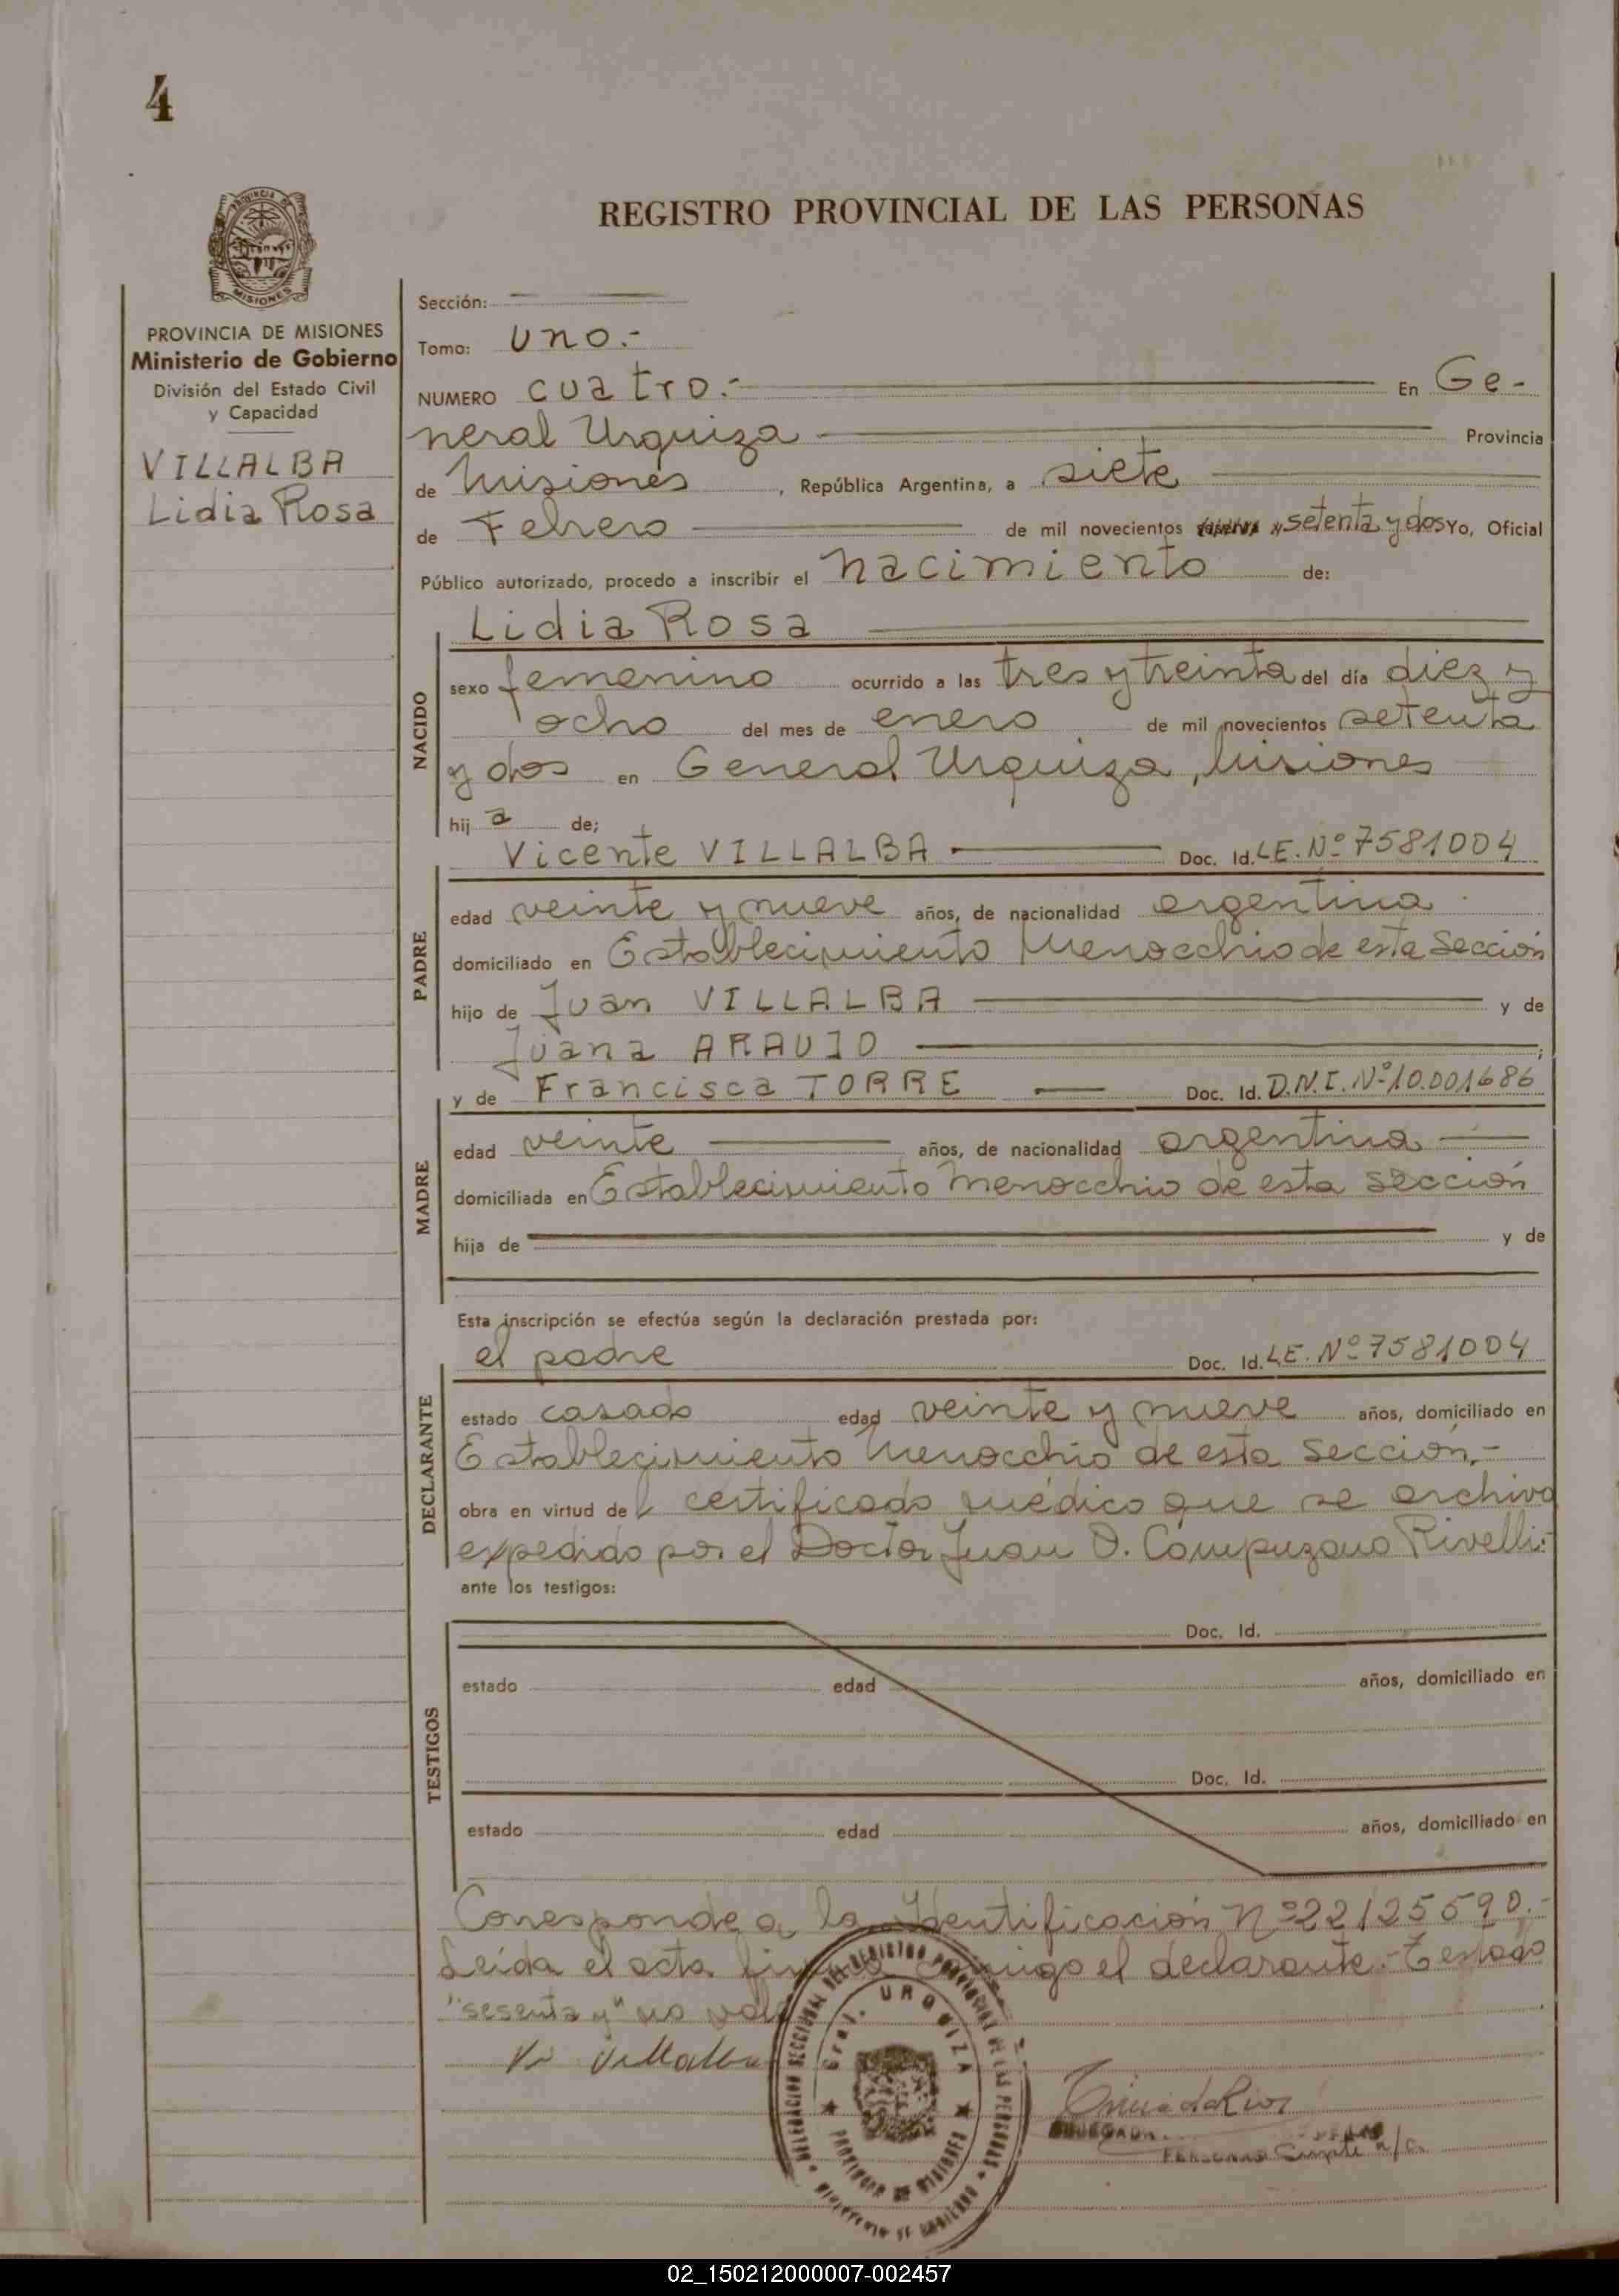 4
REGISTRO PROVINCIAL DE LAS PERSONAS
PROVINCIA DE MISIONES
Ministerio de Gobierno
División del Estado Civil
y Capacidad
VILLALBA
Lidia Rosa
Sección:
Tomo: Uno.-
NUMERO cuatro.- En Ge-
neral Urquiza Provincia
de Misiones, República Argentina, a siete
de Febrero de mil novecientos setenta y dos Yo, Oficial
Público autorizado, procedo a inscribir el nacimiento de:
Lidia Rosa
NACIDO
sexo femenino ocurrido a las tres y treinta del día diez y
ocho del mes de enero de mil novecientos setenta
y dos en General Urquiza, Misiones
hija de;
Vicente VILLALBA Doc. Id. L.E. Nº 7581004
PADRE
edad veinte y nueve años, de nacionalidad argentina
domiciliado en Establecimiento Menocchio de esta Sección
hijo de Juan VILLALBA y de
Juana ARAUJO;
y de Francisca TORRE Doc. Id. D.N.I. Nº 10.001686
MADRE
edad veinte años, de nacionalidad argentina
domiciliada en Establecimiento Menocchio de esta sección
hija de y de
Esta inscripción se efectúa según la declaración prestada por:
el padre Doc. Id. L.E. Nº 7581004
DECLARANTE
estado casado edad veinte y nueve años, domiciliado en
Establecimiento Menocchio de esta sección.-
obra en virtud del certificado médico que se archiva
expedido por el Doctor Juan O. Campuzano Rivelli.-
ante los testigos:
TESTIGOS
Doc. Id.
estado edad años, domiciliado en
Doc. Id.
estado edad años, domiciliado en
Corresponde a la Identificación Nº 22125590.-
Leída el acta firma conmigo el declarante.- Testado
"sesenta y" no vale
Vi Villalba
Gral. URQUIZA
PROVINCIA DE MISIONES
PERSONAS
02_150212000007-002457